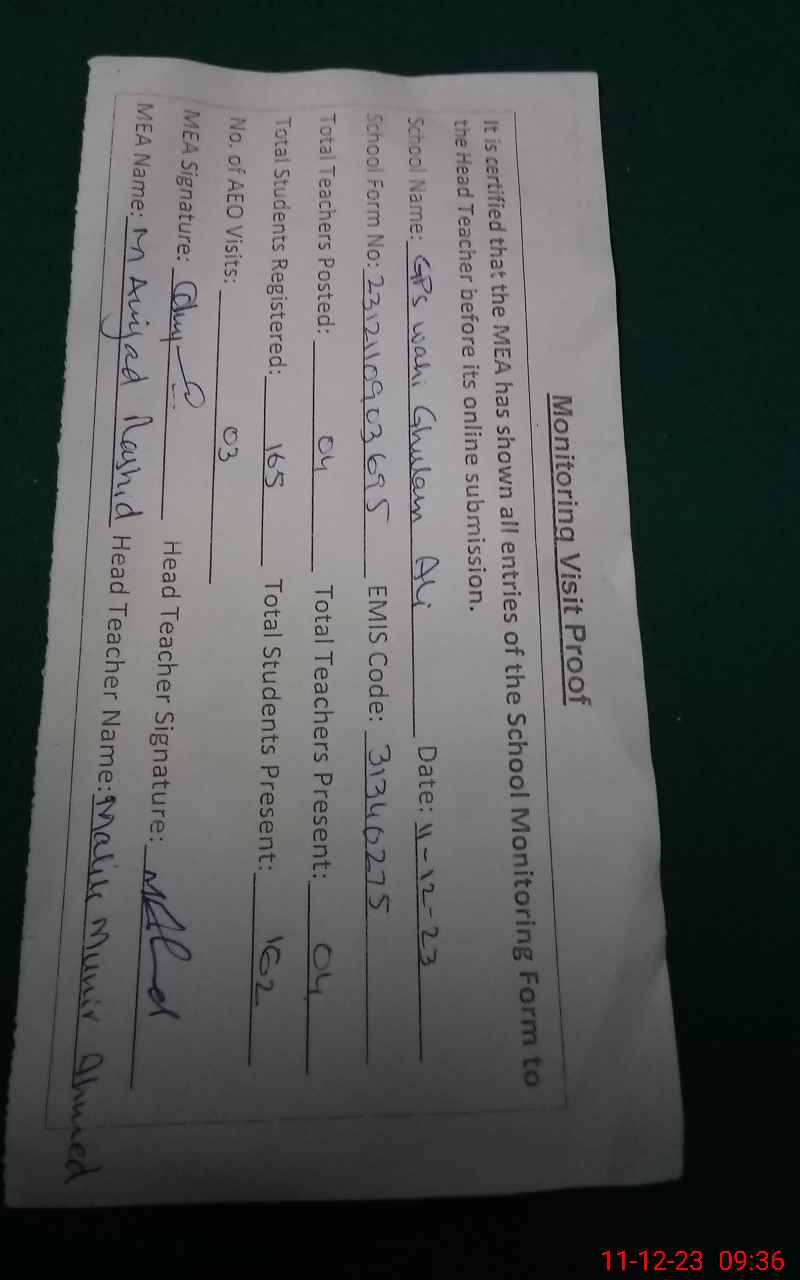 Monitoring Visit Proof
It is certified that the MEA has shown all entries of the School Monitoring Form to
the Head Teacher before its online submission.
School Name: GPS wahi Ghulam Ali Date: 11-12-23
School Form No: 2312110903695 EMIS Code: 31346275
Total Teachers Posted: 04 Total Teachers Present: 04
Total Students Registered: 165 Total Students Present: 162
No. of AEO Visits: 03
MEA Signature: Head Teacher Signature:
MEA Name: M Amjad Rashid Head Teacher Name: Malik Munir Ahmed
11-12-23 09:36